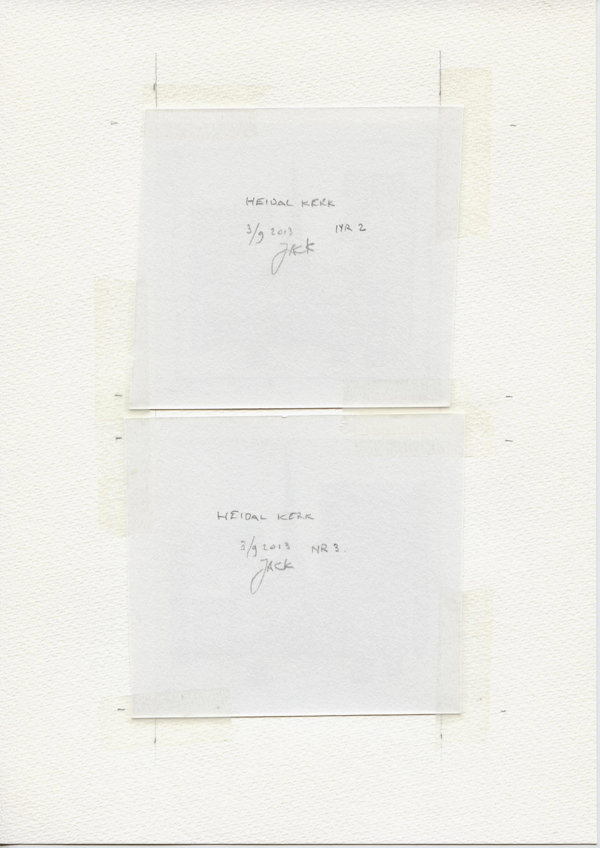 HEIDAL KERK
3/9 2013 NR 2
JACK
HEIDAL KERK
3/9 2013 NR 3.
JACK